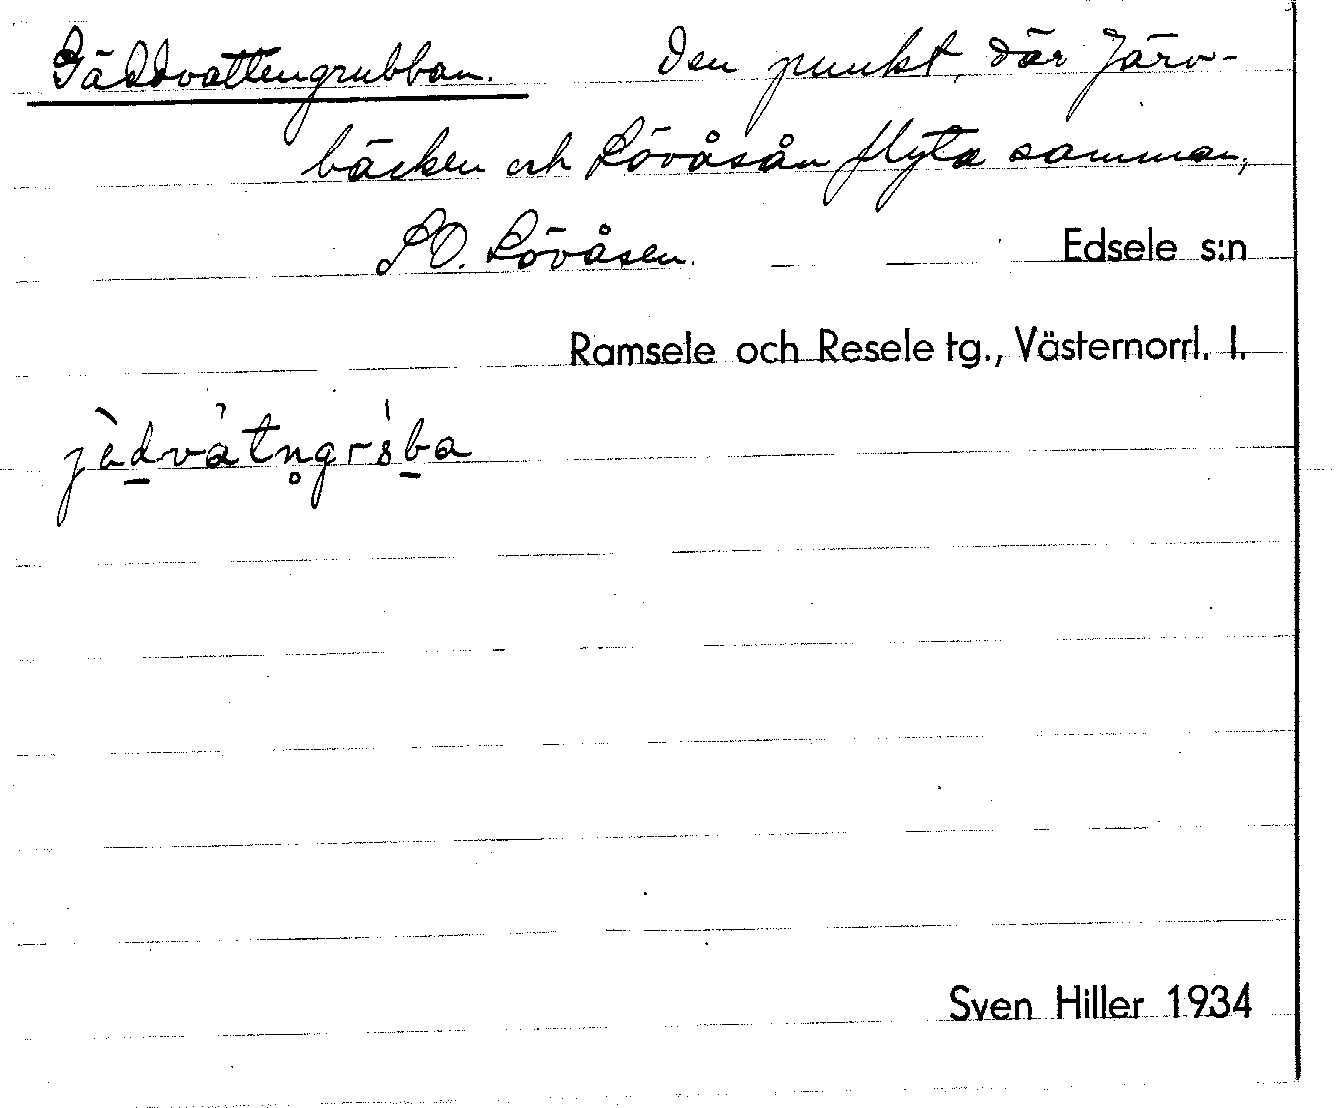 Gäddvattengrubban. Den punkt, där Järv-
bäcken och Lövåsån flyta samman,
SO. Lövåsen. Edsele s:n
Ramsele och Resele tg., Västernorrl. l.
Sven Hiller 1934